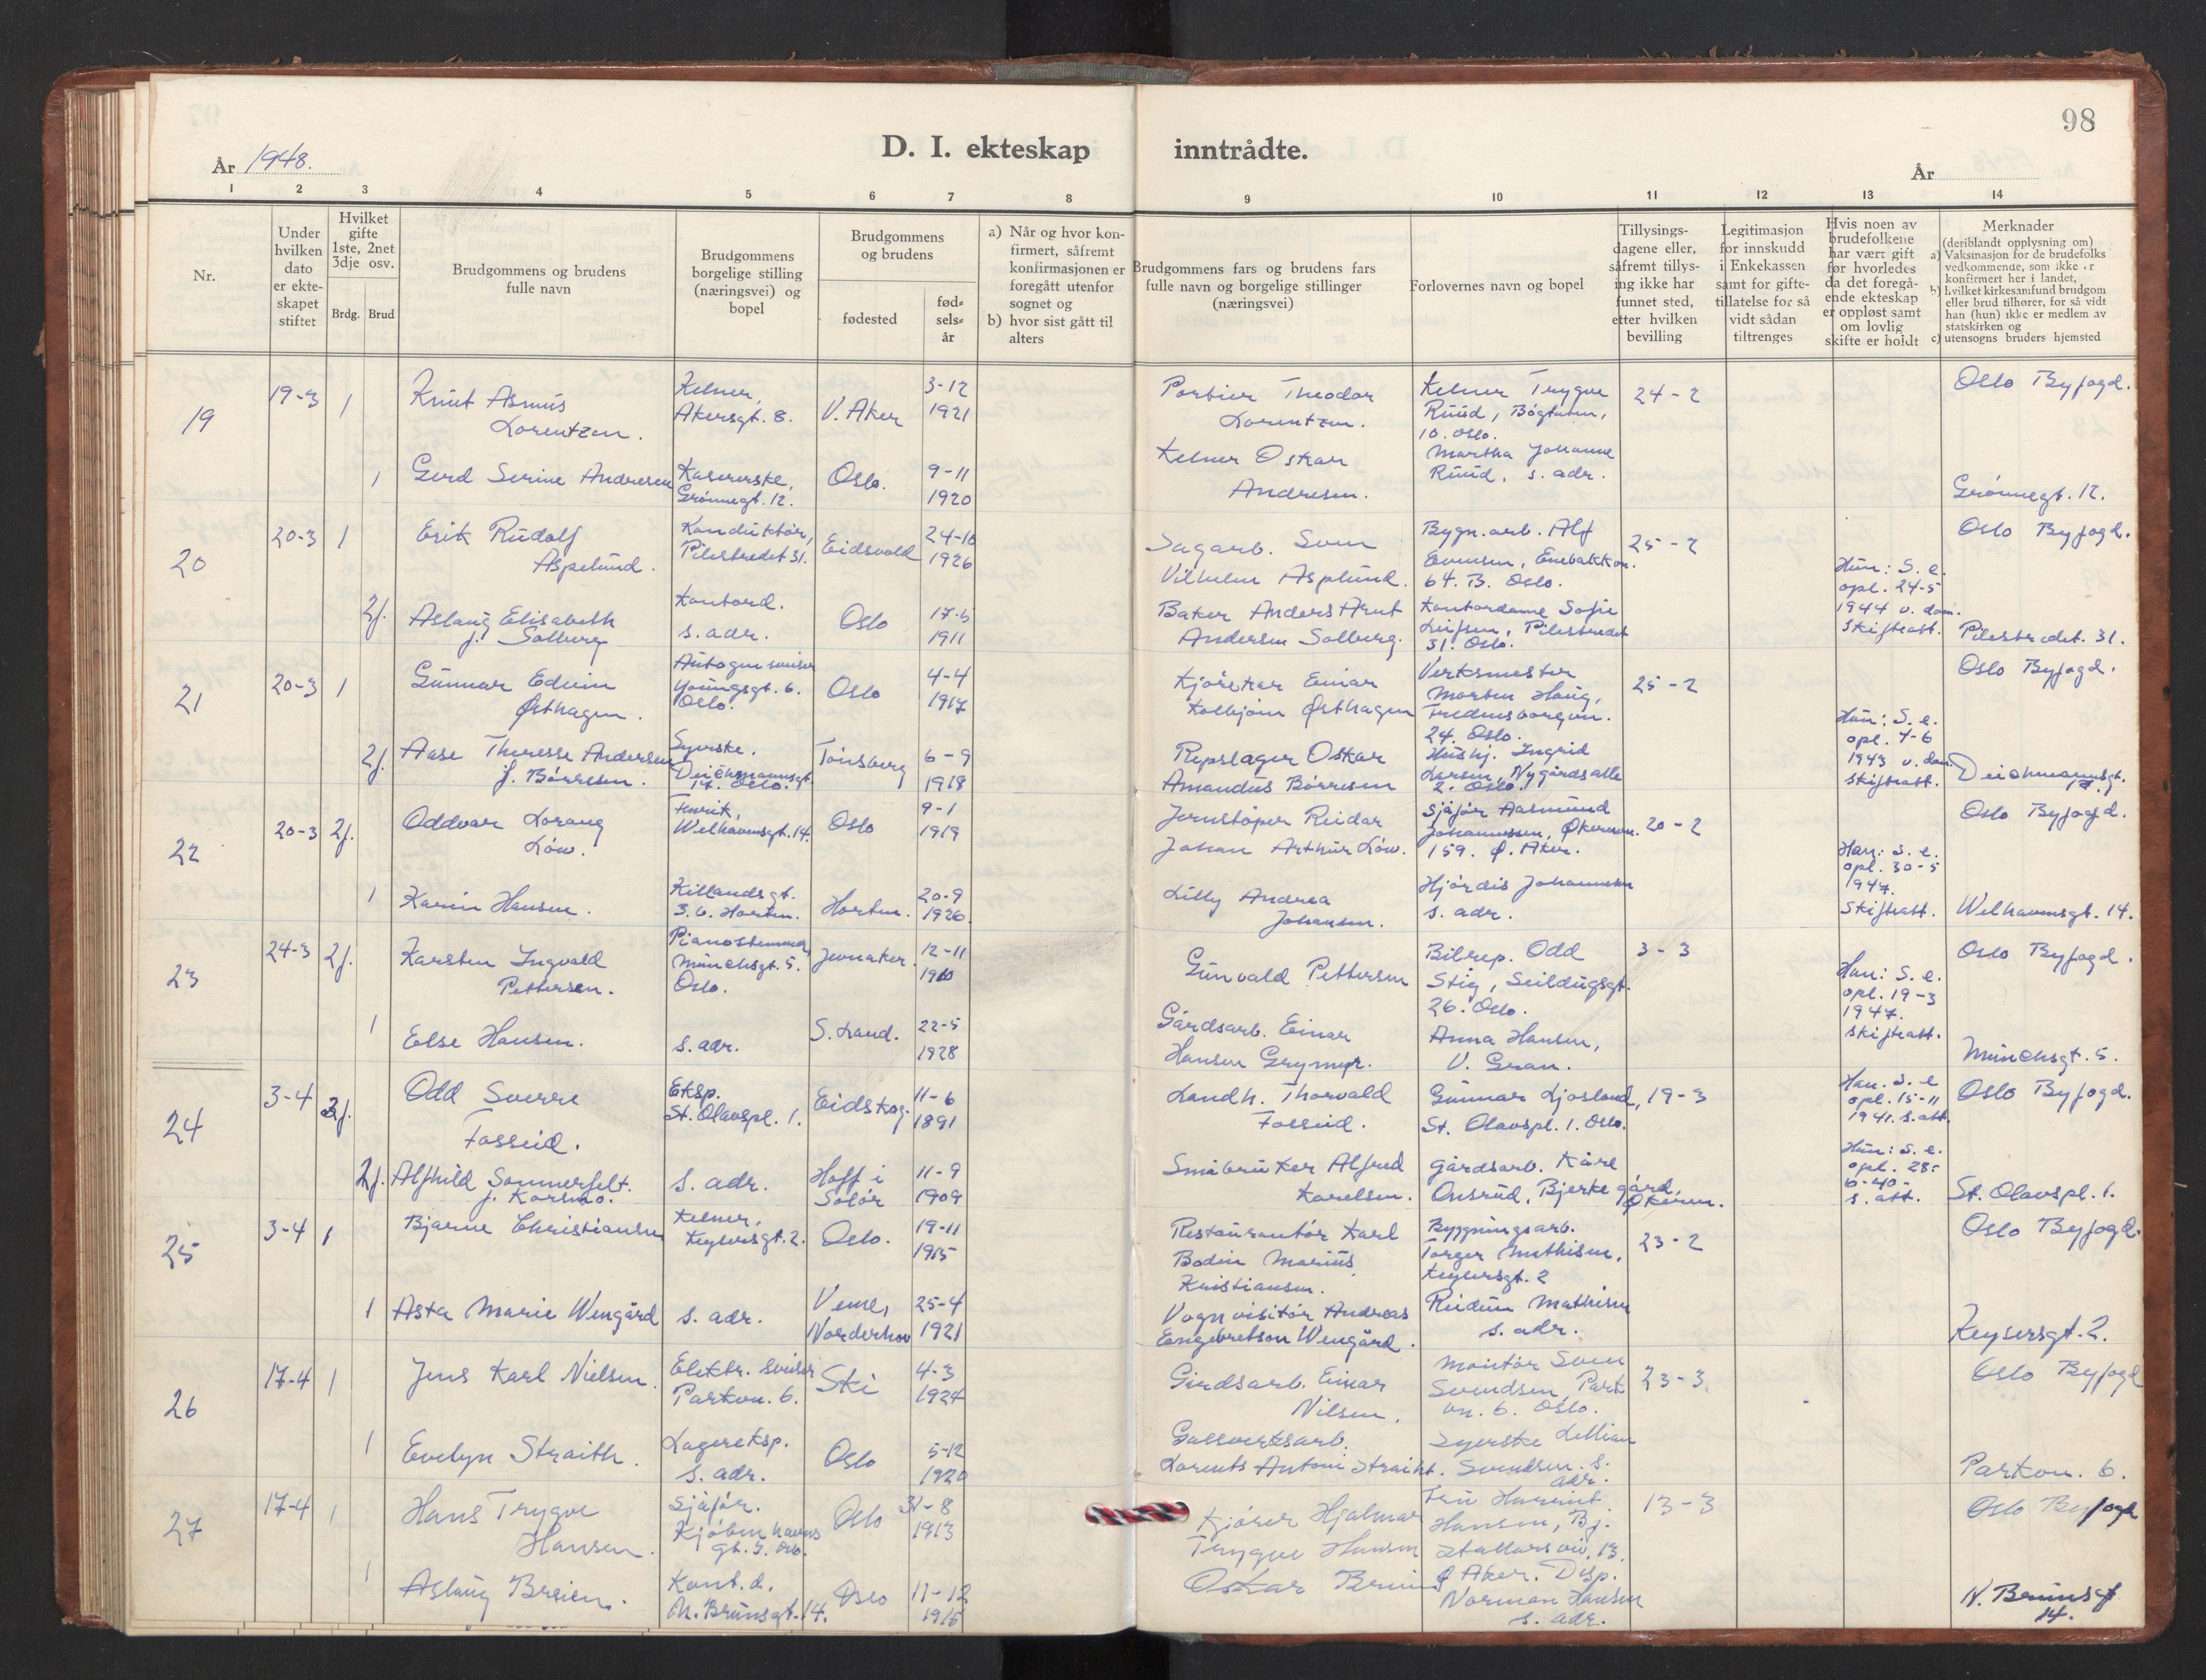 98
D. I. ekteskap inntrådte.
År 1948.
År
1 2 3 4 5 6 7 8 9 10 11 12 13 14
Nr.
Under
hvilken
dato
er ekte-
skapet
stiftet
Hvilket
gifte
1ste, 2net
3dje osv.
Brdg. Brud
Brudgommens og brudens
fulle navn
Brudgommens
borgelige stilling
(næringsvei) og
bopel
Brudgommens
og brudens
fødested
fød-
sels-
år
a) Når og hvor kon-
firmert, såfremt
konfirmasjonen er
foregått utenfor
sognet og
b) hvor sist gått til
alters
Brudgommens fars og brudens fars
fulle navn og borgelige stillinger
(næringsvei)
Forlovernes navn og bopel
Tillysings-
dagene eller,
såfremt tillys-
ing ikke har
funnet sted,
etter hvilken
bevilling
Legitimasjon
for innskudd
i Enkekassen
samt for gifte-
tillatelse for så
vidt sådan
tiltrenges
Hvis noen av
brudefolkene
har vært gift
før hvorledes
da det foregå-
ende ekteskap
er oppløst samt
om lovlig
skifte er holdt
Merknader
(deriblandt opplysning om)
a) Vaksinasjon for de brudefolks
vedkommende, som ikke er
konfirmert her i landet,
b) hvilket kirkesamfund brudgom
eller brud tilhører, for så vidt
han (hun) ikke er medlem av
statskirken og
c) utensogns bruders hjemsted
19
19-3
1
Knut Asmus
Lorentzen.
Kelner,
Akersgt. 8.
V. Aker
3-12
1921
Portier Theodor
Lorentzen.
Kelner Trygve
Ruud,
10. Oslo.
24-2
Oslo Byfogd.
1
Gerd Serine Andresen
Kasererske,
Grønnegt. 12.
Oslo.
9-11
1920
Kelner Oskar
Andresen.
Martha Johanne
Ruud, s. adr.
Grønnegt. 12.
20
20-3
1
Erik Rudolf
Aspelund.
Konduktør,
Pilestredet 31.
Eidsvold
24-10
1926
Sagarb. Sven
Vilhelm Asplund.
Bygn.arb. Alf
Evensen, Enebakkvn.
64. B. Oslo.
25-2
Oslo Byfogd.
2f.
Aslaug Elisabeth
f. Solberg
Kontord.
s. adr.
Oslo
17-5
1911
Baker Anders Arnt
Andersen Solberg.
Kontordame Sofie
Leifsen, Pilestredet
31. Oslo.
Hun: S. e.
opl. 24-5
1944 v. dom.
Skifteatt.
Pilestredet. 31.
21
20-3
1
Gunnar Edvin
Østhagen.
Autogensveiser
Youngsgt. 6.
Oslo.
Oslo
4-4
1917
Kjørekar Einar
Kolbjørn Østhagen
Verksmester
Morten Haug,
Fredensborgvn.
24. Oslo.
25-2
Oslo Byfogd.
2f.
Aase Theresse Andersen
f. Børresen.
Syerske.
Deichmannsgt.
17. Oslo.
Tønsberg
6-9
1918
Repslager Oskar
Amandus Børresen
Hushj. Ingrid
Larsen, Nygårdsalle
2. Oslo.
Hun: S. e.
opl. 7-6
1943 v. dom.
Skifteatt.
Deichmannsgt.
17.
22
20-3
2f.
Oddvar Lorang
Löw.
Welhavensgt. 14.
Oslo
9-1
1919
Jernstøper Reidar
Johan Arthur Löw.
Sjåfør Aasmund
Johannessen, Økernvn.
159. Ø. Aker.
20-2
Oslo Byfogd.
Han: S. e.
opl. 30-5
1947.
Skifteatt.
1
Karin Hansen.
Killandsgt.
3. b. Horten.
Horten.
20-9
1926.
Lilly Andrea
Johansen.
Hjørdis Johannesen
s. adr.
Welhavensgt. 14.
23
24-3
2f.
Karsten Ingvald
Pettersen.
Pianostemmer,
Munchsgt. 5.
Oslo.
Jevnaker.
12-11
1910
Gunvald Pettersen
Bilrep. Odd
Stig, Seildugsgt.
26. Oslo.
3-3
Han: S. e.
opl. 19-3
1947.
Skifteatt.
Oslo Byfogd.
1
Else Hansen.
s. adr.
S. Land.
22-5
1928
Gårdsarb. Einar
Hansen Grymyr.
Anna Hansen,
V. Gran.
Munchsgt. 5.
24
3-4
2f.
Odd Sverre
Fosseid.
Eksp.
St. Olavspl. 1.
Eidskog.
11-6
1891
Landh. Thorvald
Fosseid.
Gunnar Ljosland,
St. Olavspl. 1. Oslo.
19-3
Han. S. e
opl. 15-11
1941. s.att.
Oslo Byfogd.
2f.
Alfhild Sommerfelt.
f. Korsmo.
s. adr.
Hoff i
Solør
11-9
1909
Småbruker Alfred
Karelsen.
Gårdsarb. Kåre
Onsrud, Bjerke gård,
Økern.
Hun: S. e.
opl. 28-
6-40-
s. att.
St. Olavspl. 1.
25
3-4
1
Bjarne Christiansen
Kelner,
Keysersgt. 2.
Oslo.
19-11
1915
Restauratør Karl
Bodin Marius
Kristiansen.
Bygningsarb.
Torger Mathisen,
Keysersgt. 2
23-2
Oslo Byfogd.
1
Asta Marie Wengård
s. adr.
Veme,
Norderhov
25-4
1921
Vognvisitør Andreas
Engebretson Wengård.
Reidun Mathisen
s. adr.
Keysersgt. 2.
26
17-4
1
Jens Karl Nielsen.
Elektr. sveiser
Parkvn. 6.
Ski
4-3
1924
Gårdsarb. Einar
Nilsen.
Montør Sven
Svendsen, Park
vn. 6. Oslo.
23-3
Oslo Byfogd
1
Evelyn Straith.
Lagereksp.
s. adr.
Oslo
5-12
1920
Gassverksarb.
Lorents Antoni Straiht.
Syerske Lillian
Svendsen. s.
adr.
Parkvn. 6.
27
17-4
1
Hans Trygve
Hansen.
Sjåfør.
Kjøbenhavns
gt. 7. Oslo.
Oslo
31-8
1913
Kjører Hjalmar
Trygve Hansen
Fru Harriet
Hansen, Bj.
Stallarsvei, 13.
Ø Aker. Disp.
13-3
Oslo Byfogd
1
Aslaug Breien.
Kont.d.
N. Brunsgt. 14.
Oslo
11-12
1915
Oskar
Norman Hansen
s. adr.
N. Brunsgt
14.